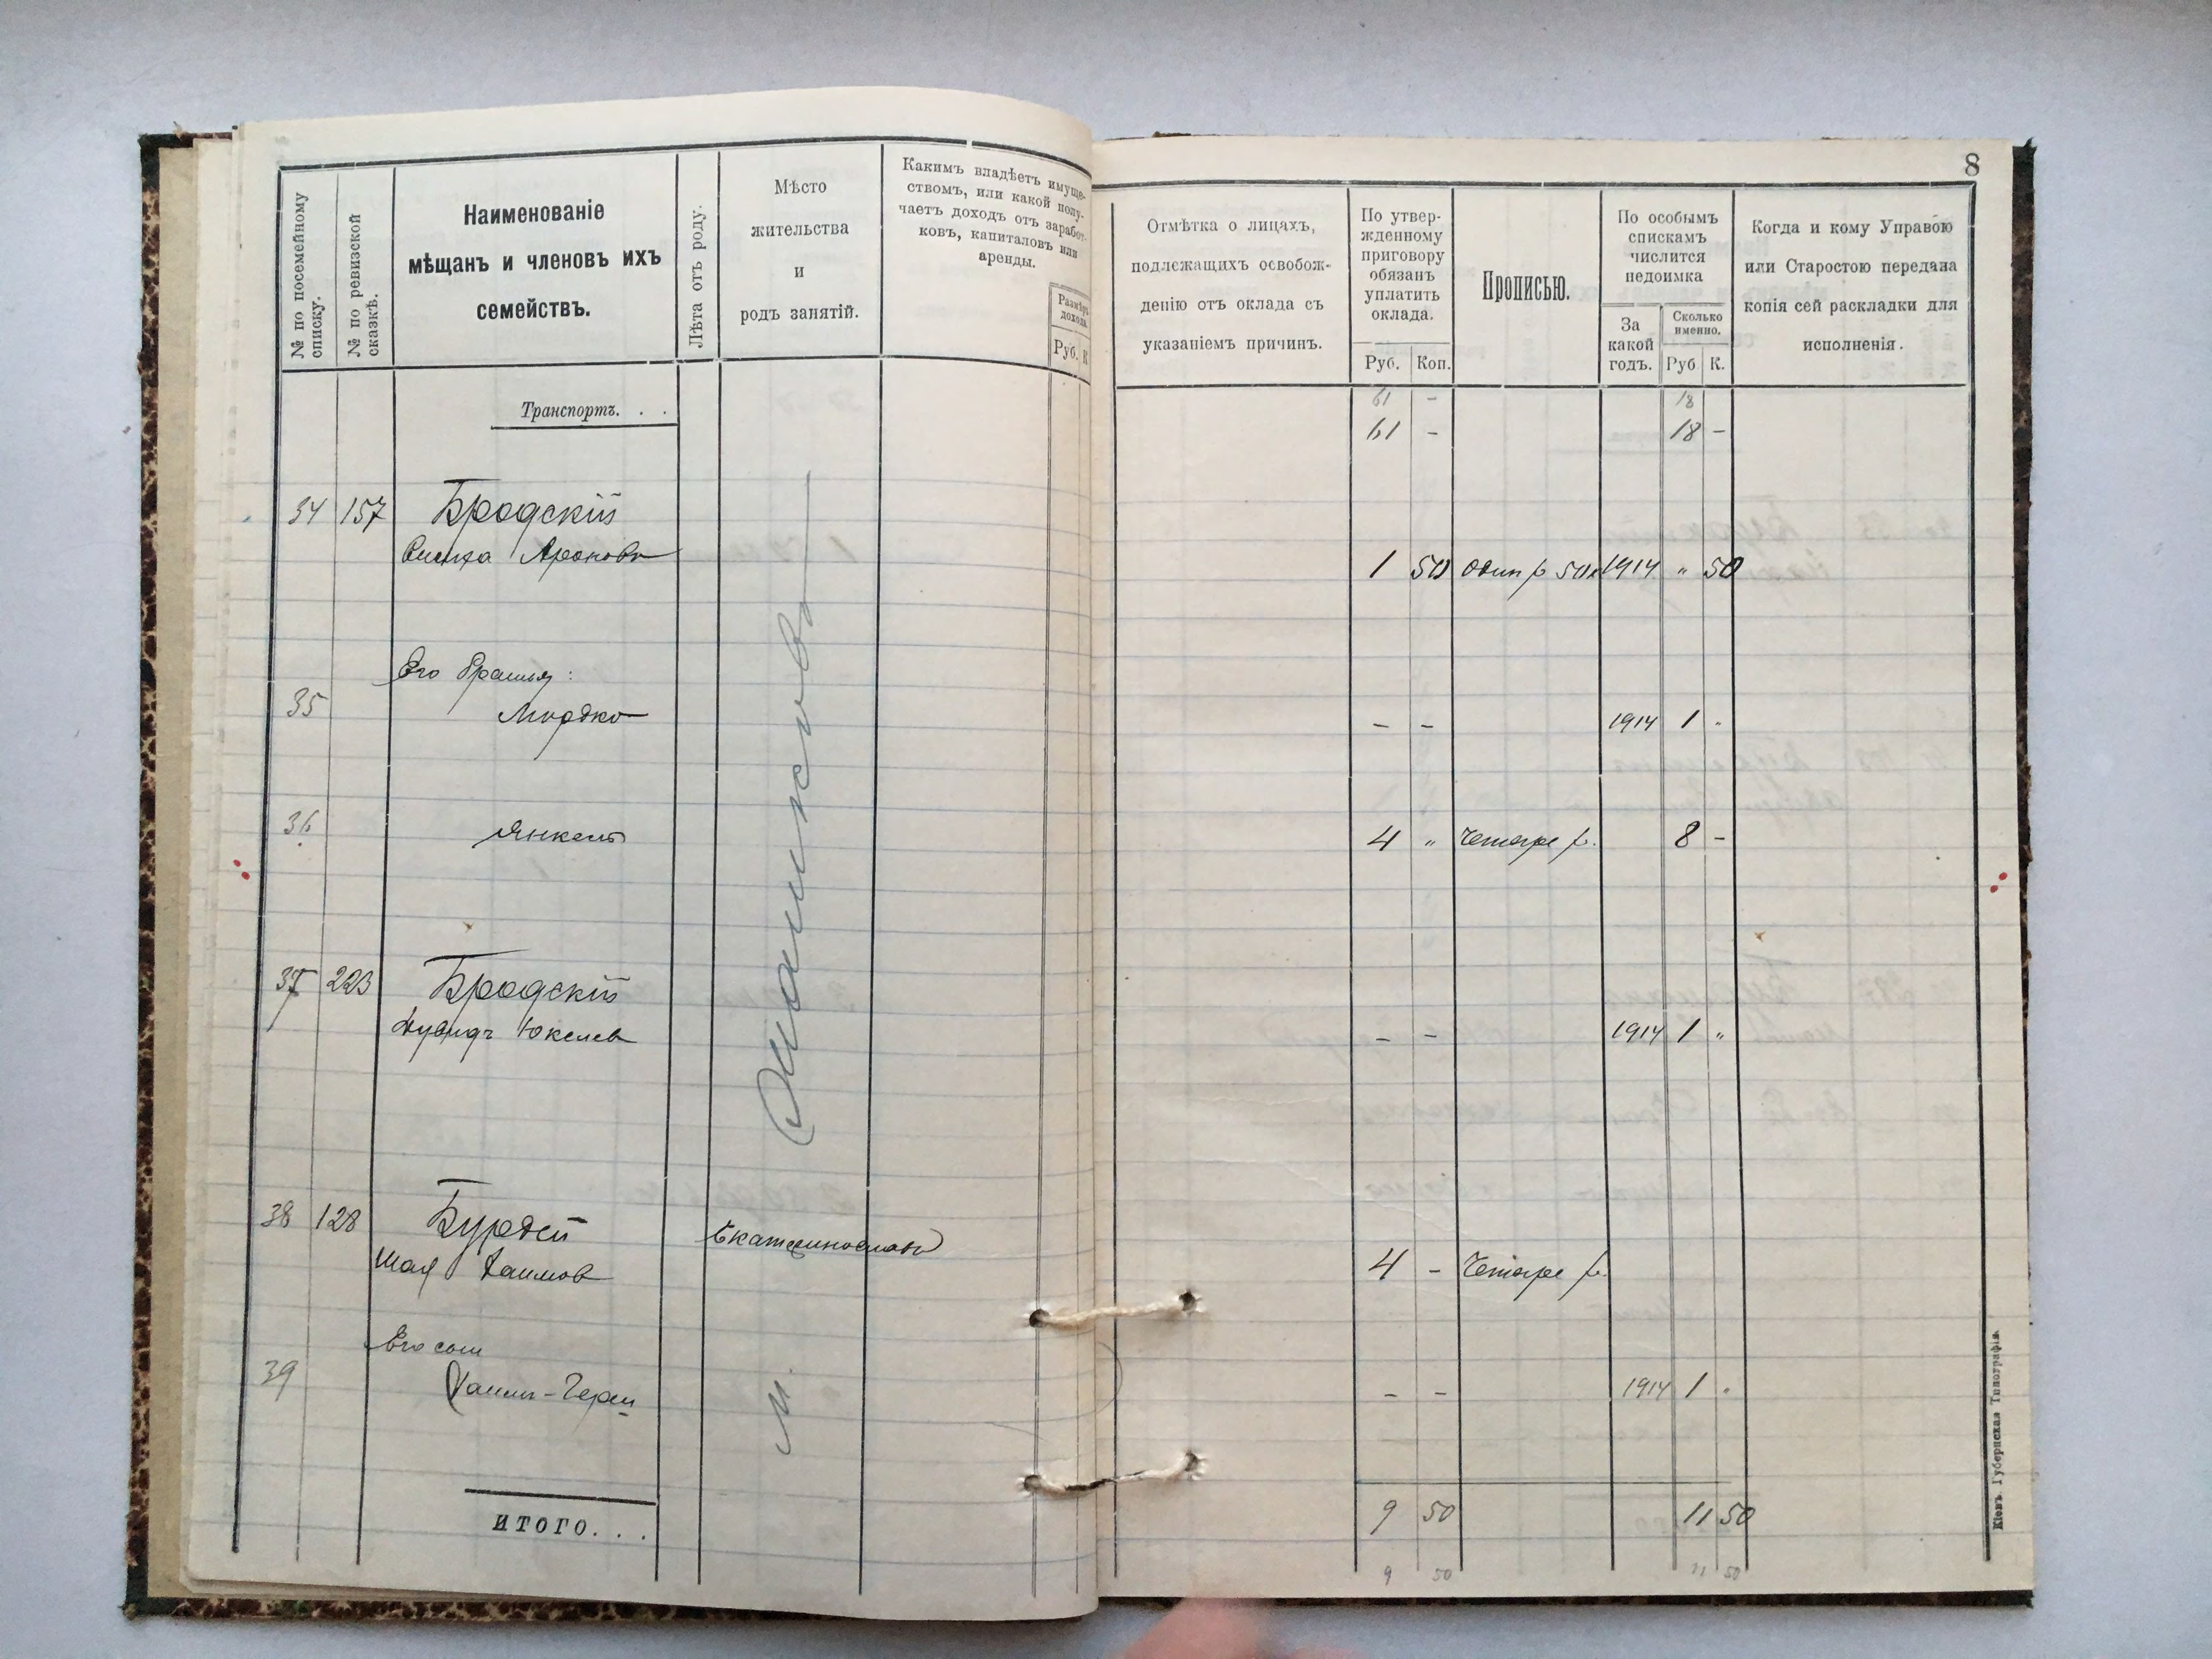 № по посемейному
списку.
№ по ревизской
сказкѣ.
Наименованіе
мѣщанъ и членовъ ихъ
семействъ.
Лѣта отъ роду.
Мѣсто
жительства
и
родъ занятій.
Какимъ владѣетъ имуще-
ствомъ, или какой полу-
чаетъ доходъ отъ заработ-
ковъ, капиталовъ или
аренды.
Размѣръ
дохода.
Руб. К
Транспортъ. . .
34 157 Бродскій
Аронов
Его братья:
35
Мордко
36
Янкель
37 223 Бродскій
Дувидъ Юкелев
38 128 Бурдей
Шая Хаимов
Екатеринослав
Его сын
39
Хаим-Герш
м.
ИТОГО. . .
8
Отмѣтка о лицахъ,
подлежащихъ освобож-
денію отъ оклада съ
указаніемъ причинъ.
По утвер-
жденному
приговору
обязанъ
уплатить
оклада.
Руб. Коп.
Прописью.
По особымъ
спискамъ
числится
недоимка
За
какой
годъ.
Сколько
именно.
Руб К.
Когда и кому Управою
или Старостою передана
копія сей раскладки для
исполненія.
61 - 18
61 - 18 -
1 50 один р 50к 1914 " 50
- - 1914 1 "
4 " Четыре р. 8 -
- - 1914 1 "
4 - Четыре р.
- - 1914 1 "
9 50 11 50
9 50 11 50
Кіевъ. Губернская Типографія.